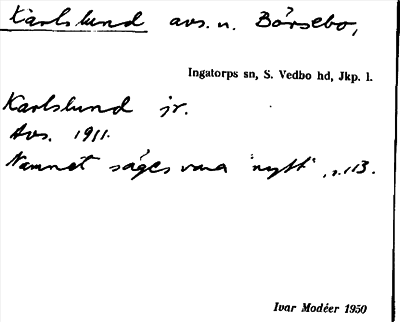 Karlslund avs. n. Börsebo,
Ingatorps sn, S. Vedbo hd, Jkp. l.
Karlslund jr.
Avs. 1911.
Namnet säges vara "nytt", s. 113.
Ivar Modéer 1950